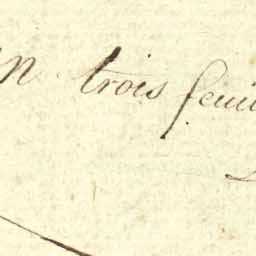 n trois feui